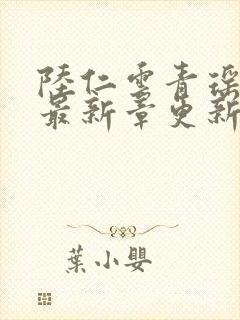 陸仁雲青瑤
最新章更新
葉小嬰